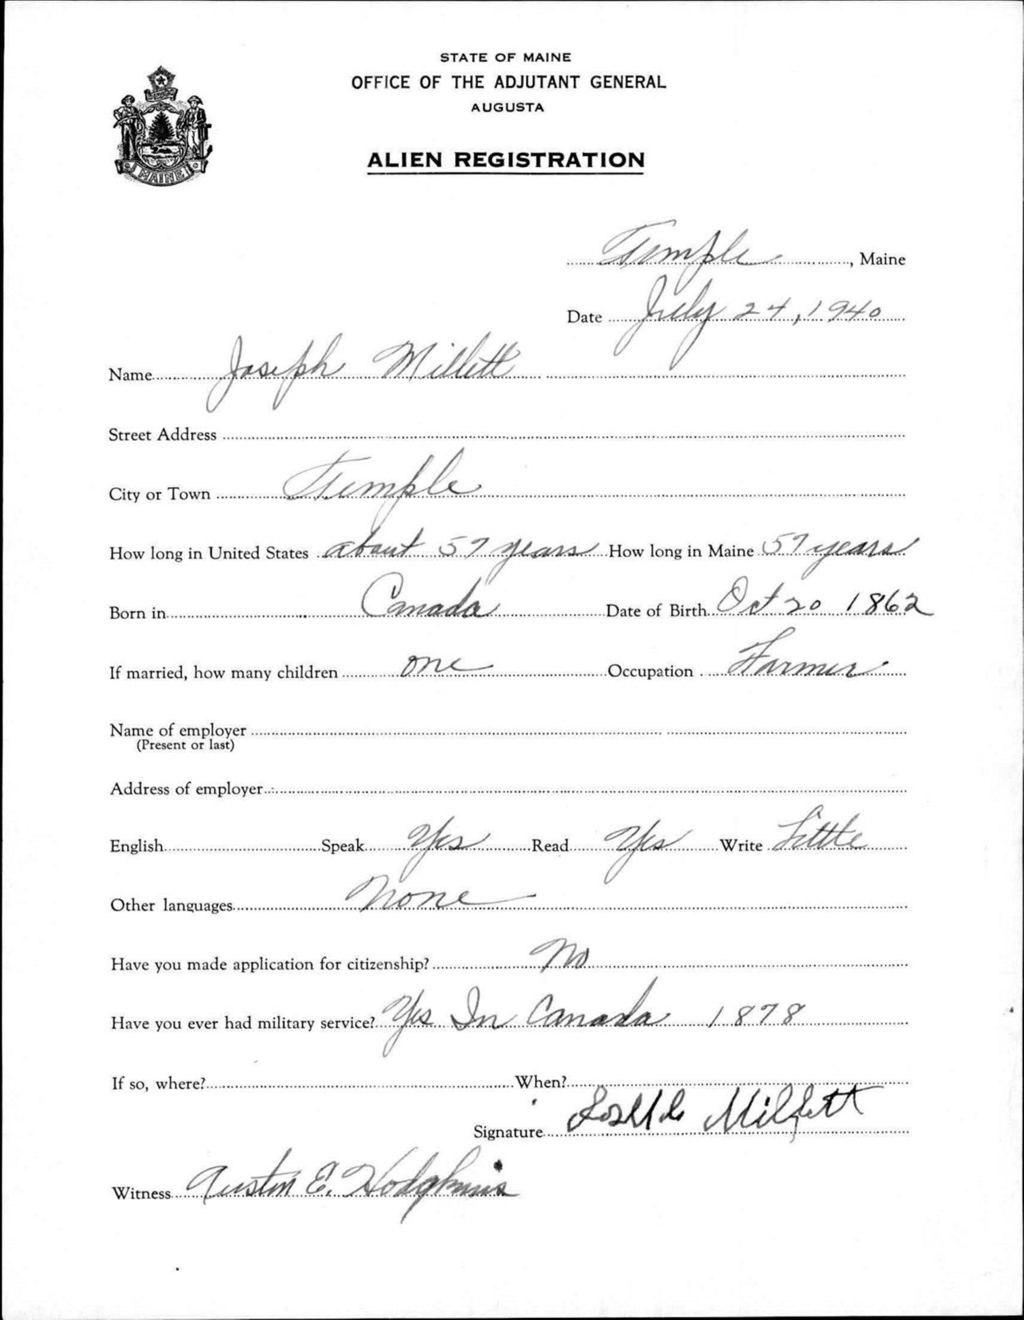 STATE OF MAINE
OFFICE OF THE ADJUTANT GENERAL
AUGUSTA
ALIEN REGISTRATION
MAINE
Temple, Maine
Date July 24, 1940
Name Joseph Millett
Street Address
City or Town Temple
How long in United States about 57 years How long in Maine 57 years
Born in Canada Date of Birth Oct 20 1862
If married, how many children one Occupation Farmer
Name of employer
(Present or last)
Address of employer
English Speak Yes Read Yes Write Little
Other languages None
Have you made application for citizenship? No
Have you ever had military service? Yes In Canada 1878
If so, where? When?
Signature Millett
Witness Austin E. Hodgkins